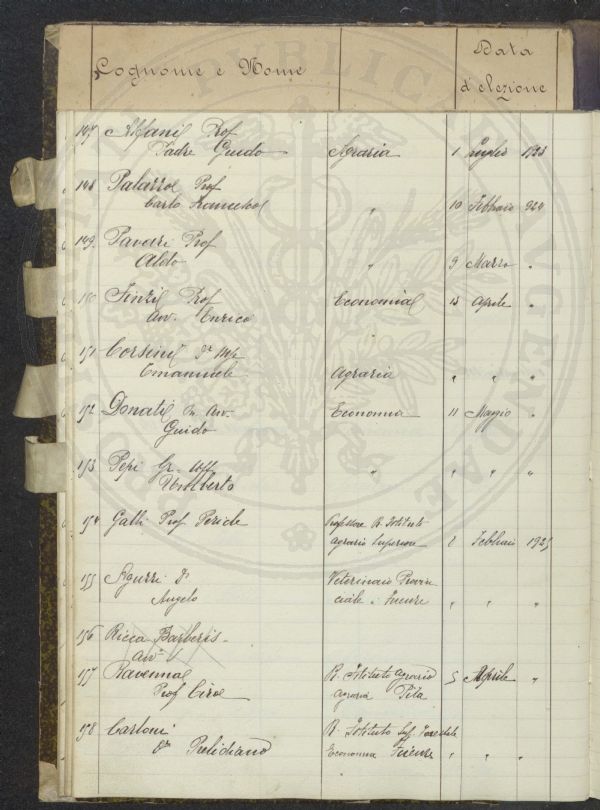 Cognome e Nome
Data
d'elezione
147 Alfani Prof
Padre Guido Agraria 1 Luglio 1923
148 Prof
Carlo " 10 Febbraio 924
149. Pavari Prof
Aldo " 9 Marzo "
150 Finzi Prof
Av. Enrico Economia 15 Aprile "
151 Corsini
Emanuele Agraria " " "
152 Donati Av.
Guido Economia 11 Maggio "
153 Pepi Gr. Uff
Umberto " " " "
154 Galli Prof Pericle Professore R. Istituto
agrario Superiore 2 Febbraio 1925
155 Dr Veterinario Provin
Angelo ciale Firenze " " "
156 Ricca Barberis
Avv
157 Ravenna R. Istituto Agrario
Prof Ciro agraria Pisa 5 Aprile "
158 Carloni R. Istituto Sup. Forestale
Economia Firenze " " "